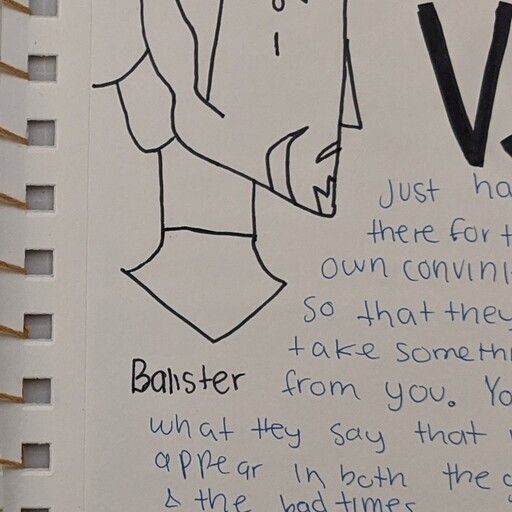 Vs
Just ha
there for t
own convini
so that they
take somethi
Balister from you. Yo
what they say that
appear in both the g
& the bad times